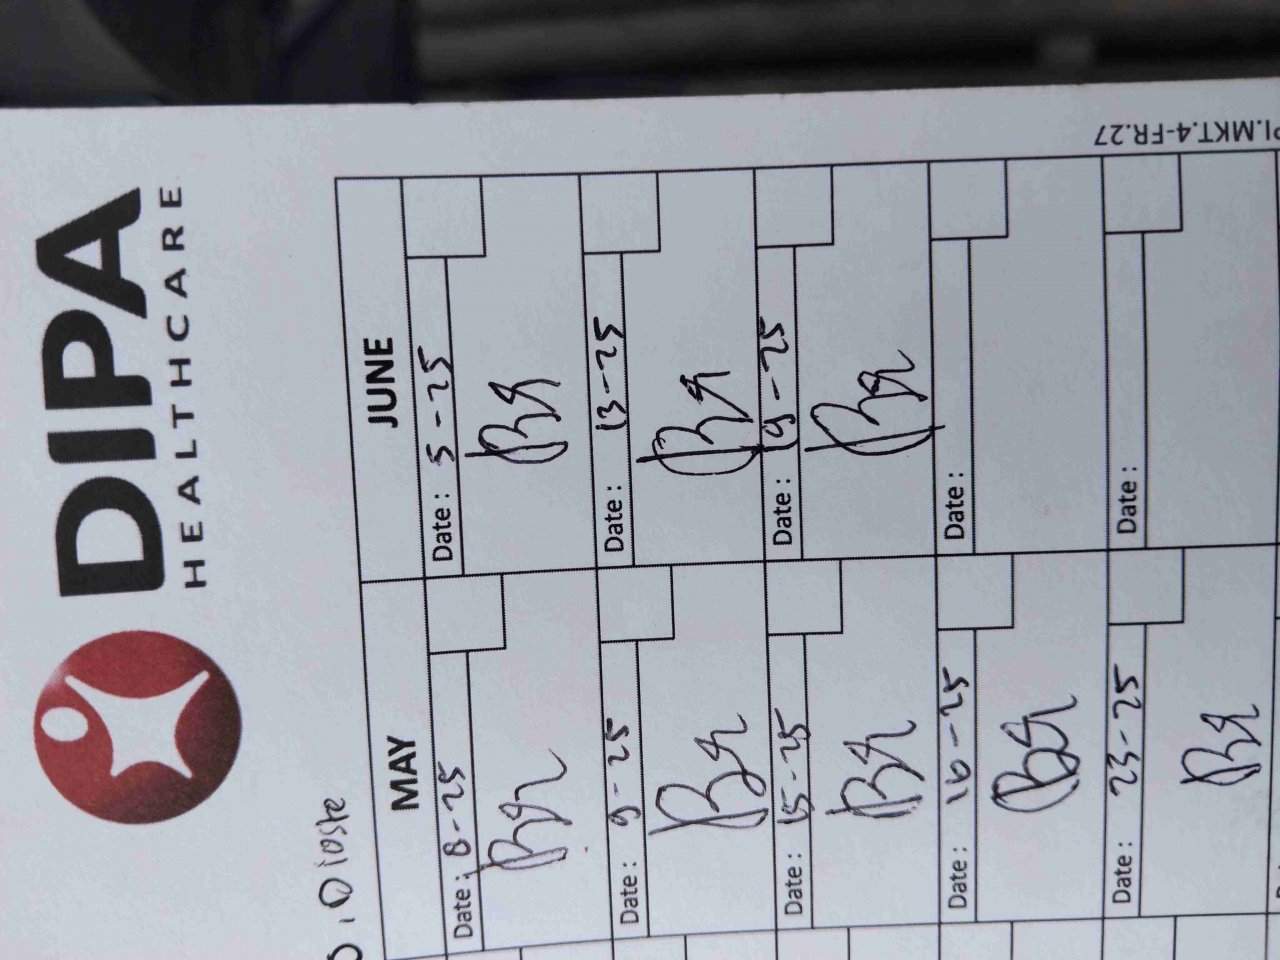 DIPA
HEALTHCARE
MAY
JUNE
Date : 8-25
Date : 5-25
Date : 9-25
Date : 13-25
Date : 15-25
Date : 19-25
Date : 16-25
Date :
Date : 23-25
Date :
PI.MKT.4-FR.27